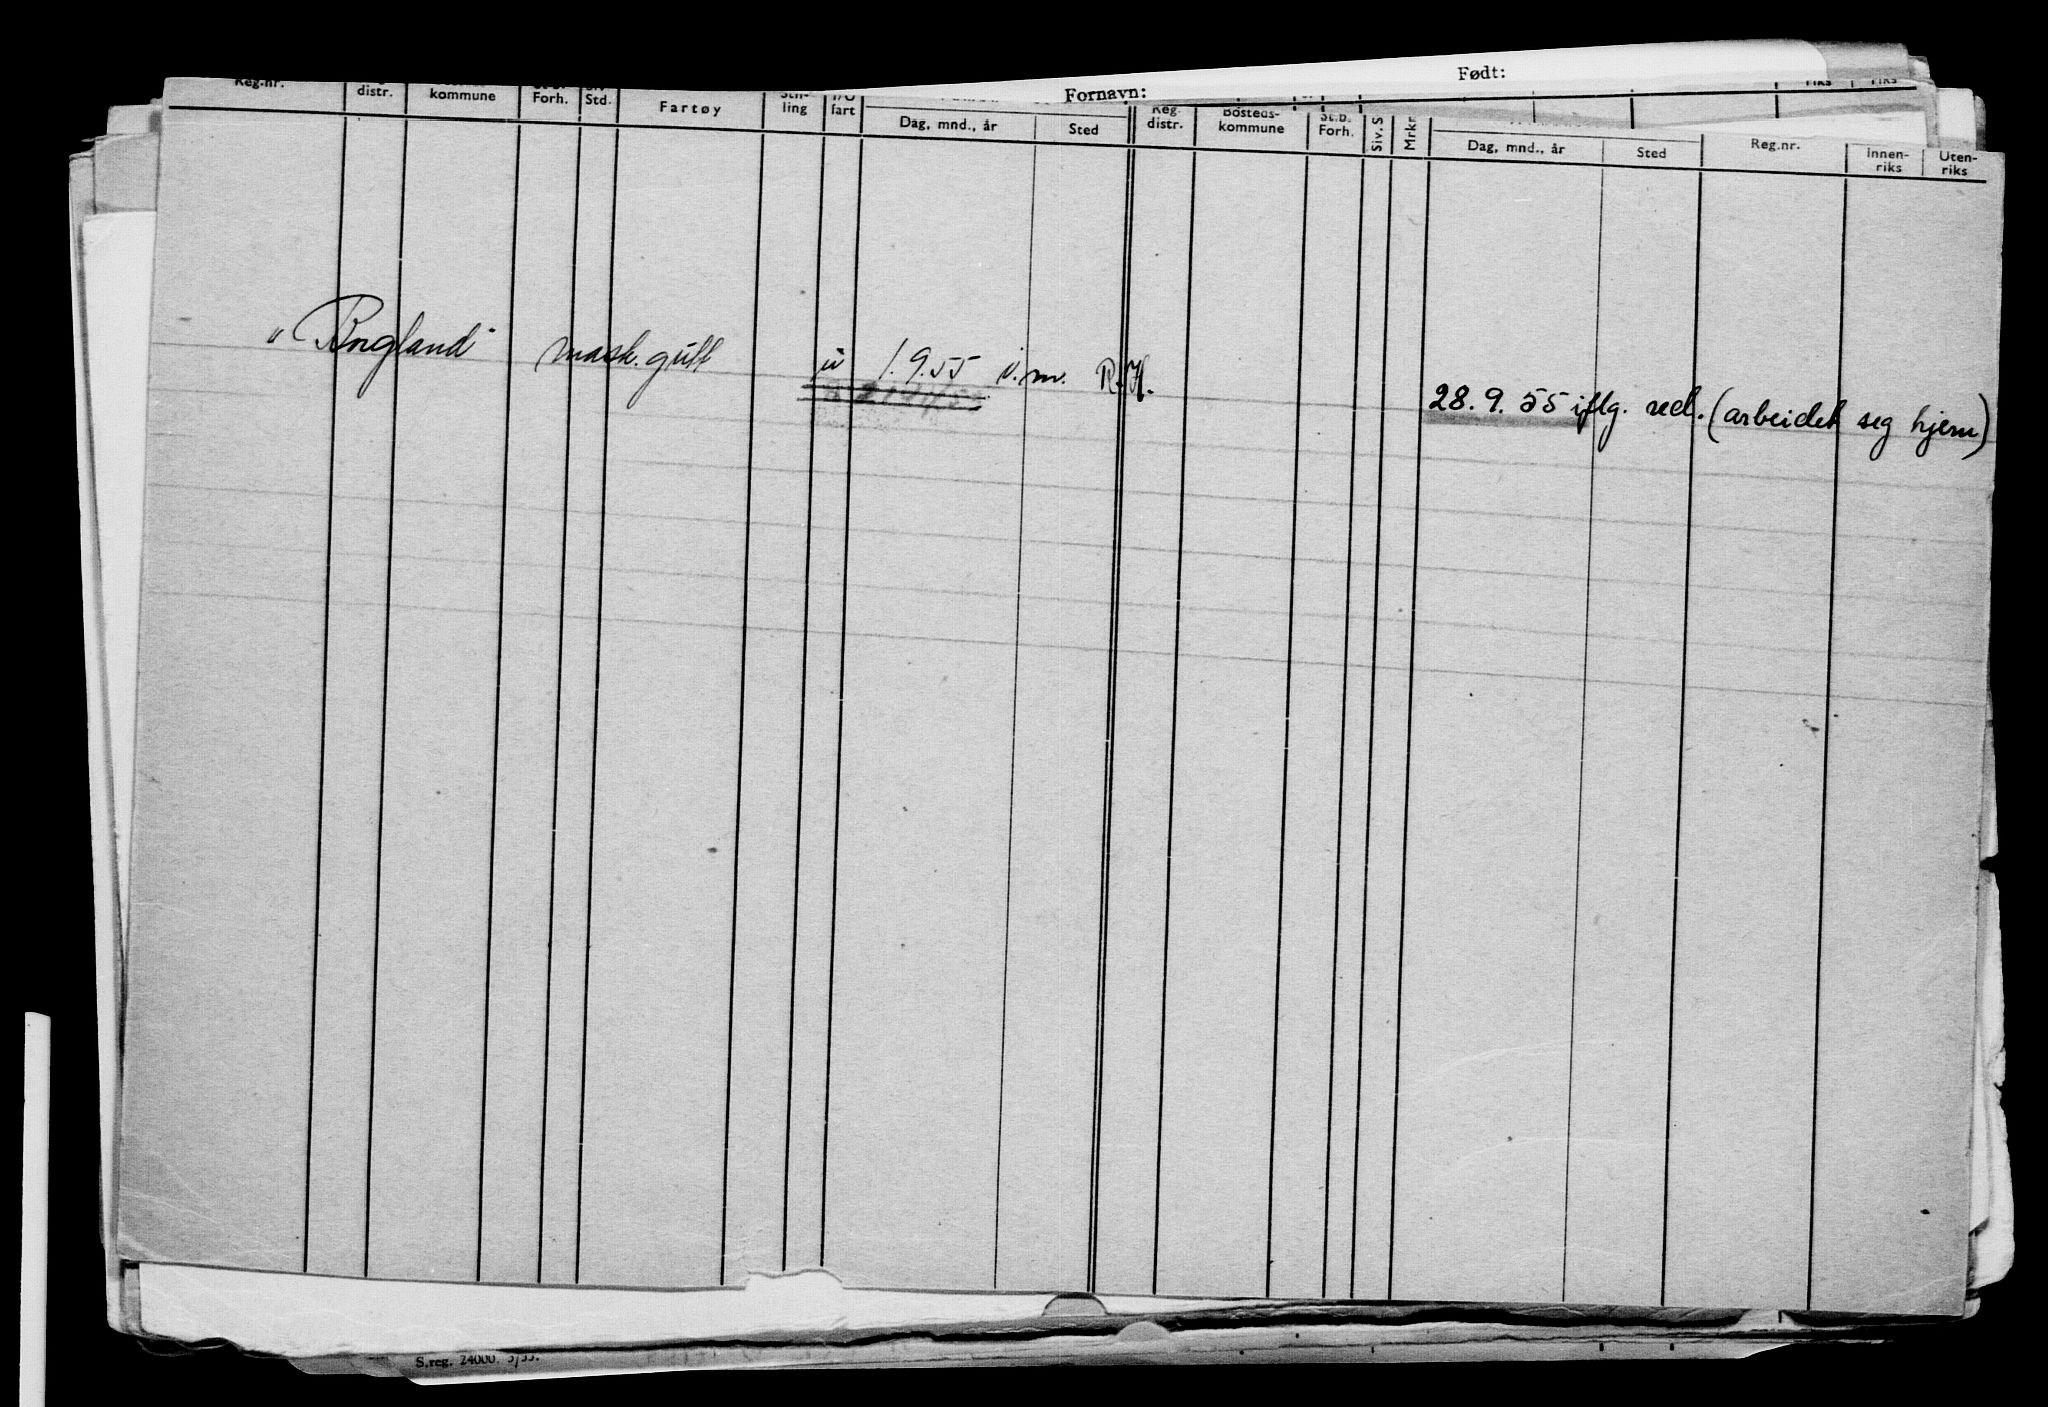 Født:
Fornavn:
Reg.nr. distr. kommune Forh. Std. Fartøy ling fart Dag, mnd., år Sted Reg. distr. Bosteds-kommune St.b. Forh. Siv. S Mrkr Dag, mnd., år Sted Reg.nr. Innen-riks Uten-riks
"Borgland" mask.gutt u 1.9.55 i.m. R.H.
28.9.55 iflg. red. (arbeidet seg hjem)
S.reg. 24000. 5/53.